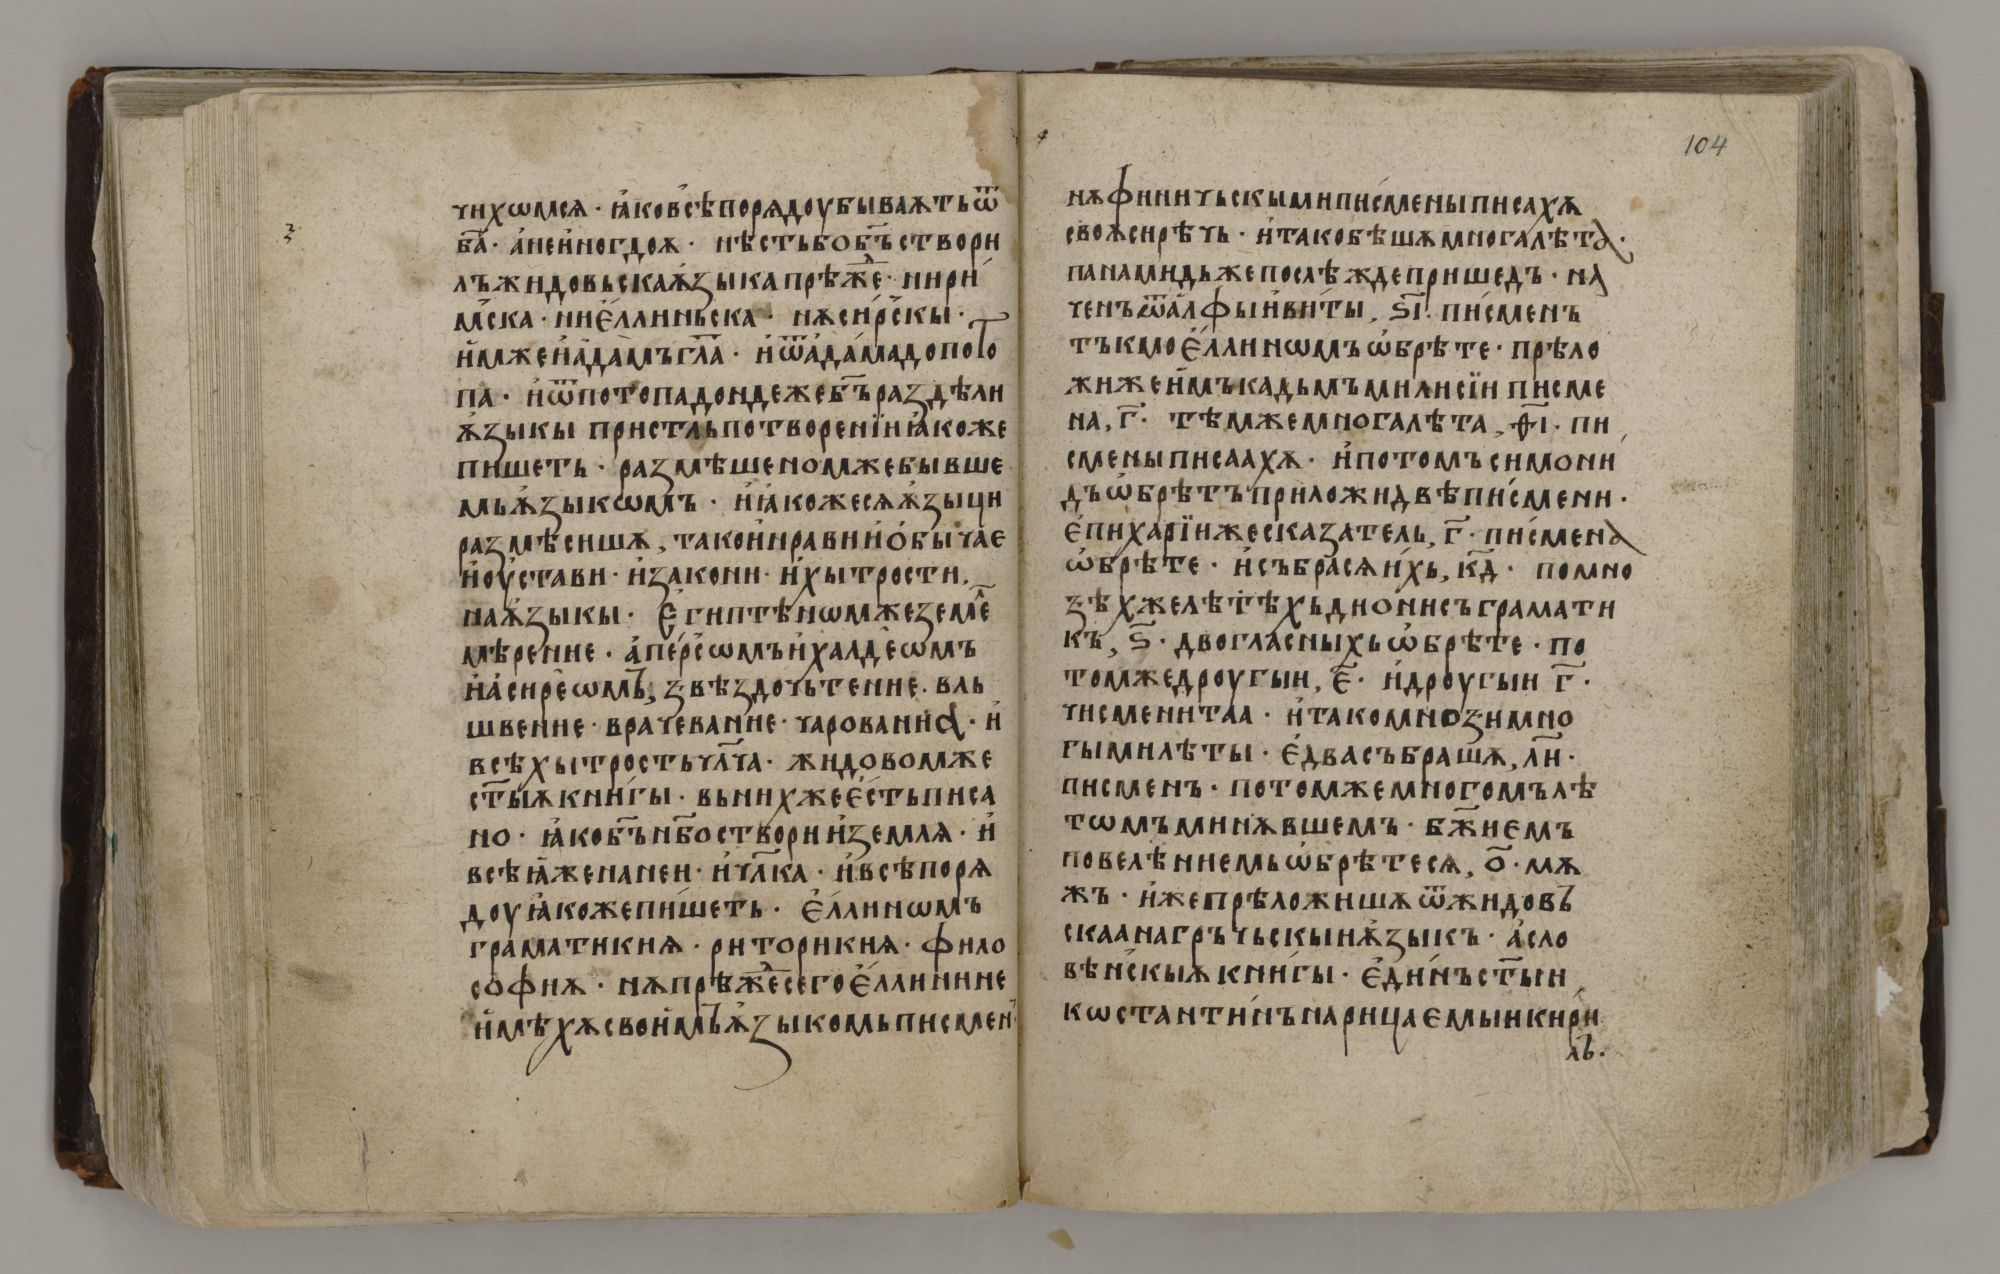 чихѡмсѧ · ꙗ҆ко в҆сѣ по рядоу быва̑ѫть ѿ
ба҃ · а҆ не и҆ногдоѫ · нѣсть бо бъ҃ створи
лъ жидовьска ѧ҆зыка прѣжⷣе · ни ри́
мⷭ҇ка · ни є҆́ллиньска · нѫ си́рⷭ҇скы ·
и҆́мже и҆ а҆да́мъ гл҃а · и҆ ѿ а҆да́ма до пото
па · и҆ ѿ потопа дондеже бъ҃ раздѣли
ѧ҆зыкы при стлъпотворенїи ꙗ҆коже
пишеть · размѣшеномже бывше
мь ѧ҆зыкѡмъ · и҆ ꙗ҆коже сѧ ѧ҆зыци
размѣсишѧ, тако и҆ нрави и҆ ѻ҆бычае
и҆ оу҆става · и҆ закони · и҆ хытрости.
на ѧ҆зыкы · Є҆гиптѣнѡмже землⷨе
мѣрение · а҆ пе́рсѡмъ и҆ халде́ѡмъ
и҆ а҆сире́ѡмъ, звѣздочьтение. влъ
швение · врачевание · чарованиа · и҆
всѣ хытрость чл҃ча · жидовомже
ст҃ыѫ кни́гы · вь нихже є҆́сть писа
но · ꙗ҆ко бъ҃ нб҃о створи и҆ землѧ · и҆
всѣ ꙗ҆же на неи · и҆ чл҃ка · и҆ всѣ по ря
доу ꙗ҆коже пи́шеть · є҆́ллинѡмъ
граматикиѧ · риторикиѧ · фило
софиѫ · нѫ прѣжⷣе сего є҆́ллини не
и҆мѣхѫ свои҆мъ ѧ҆зыкомь писмен
104
нѫ финичьскыми пи́смены писахѫ
своѫ си рѣчь · и҆ тако бѣшѧ многа лѣта ·
панамидь же послѣжде пришедъ · на
ченъ ѿ а҆́лфы и҆ ви́ты, ѕ҃і. пи́сменъ
тъкмо є҆́ллинѡмъ ѡ҆брѣте · прѣло
жи же и҆́мъ кадьмъ милисїи писме
на, г҃ · тѣмже многа лѣта, ѳ҃і · пи
смены писаахѫ · и҆ потомъ симони
дъ ѡ҆брѣтъ приложи двѣ пи́смени ·
є҆пихарїи же сказатель, г҃ · пи́смена
ѡ҆брѣте · и҆ събрасѧ и҆́хь, к҃д · по мно
зѣхже лѣтѣхь диони́съ грамати
къ, ѕ҃ · двогласныхь ѡ҆брѣте · по
томже дроугыи, є҃ · и҆ дроугыи г҃ ·
чисменитаа · и҆ тако мнозии мно
гыми лѣты · є҆два събрашѧ, л҃и ·
писменъ · потомже многомъ лѣ
тѡмъ минѫвшемъ · бж҃иємъ
повелѣниемь ѡ҆брѣтесѧ, о҃ · мѫ
жъ · и҆же прѣложишѧ ѿ жидовъ
скаа на гръчьскыи ѧ҆зыкъ · а҆ сло
вѣнⷭ҇кыѫ кни́гы · є҆ди́нъ ст҃ыи
кѡстанти́нъ нарицаємыи кири́
лъ.